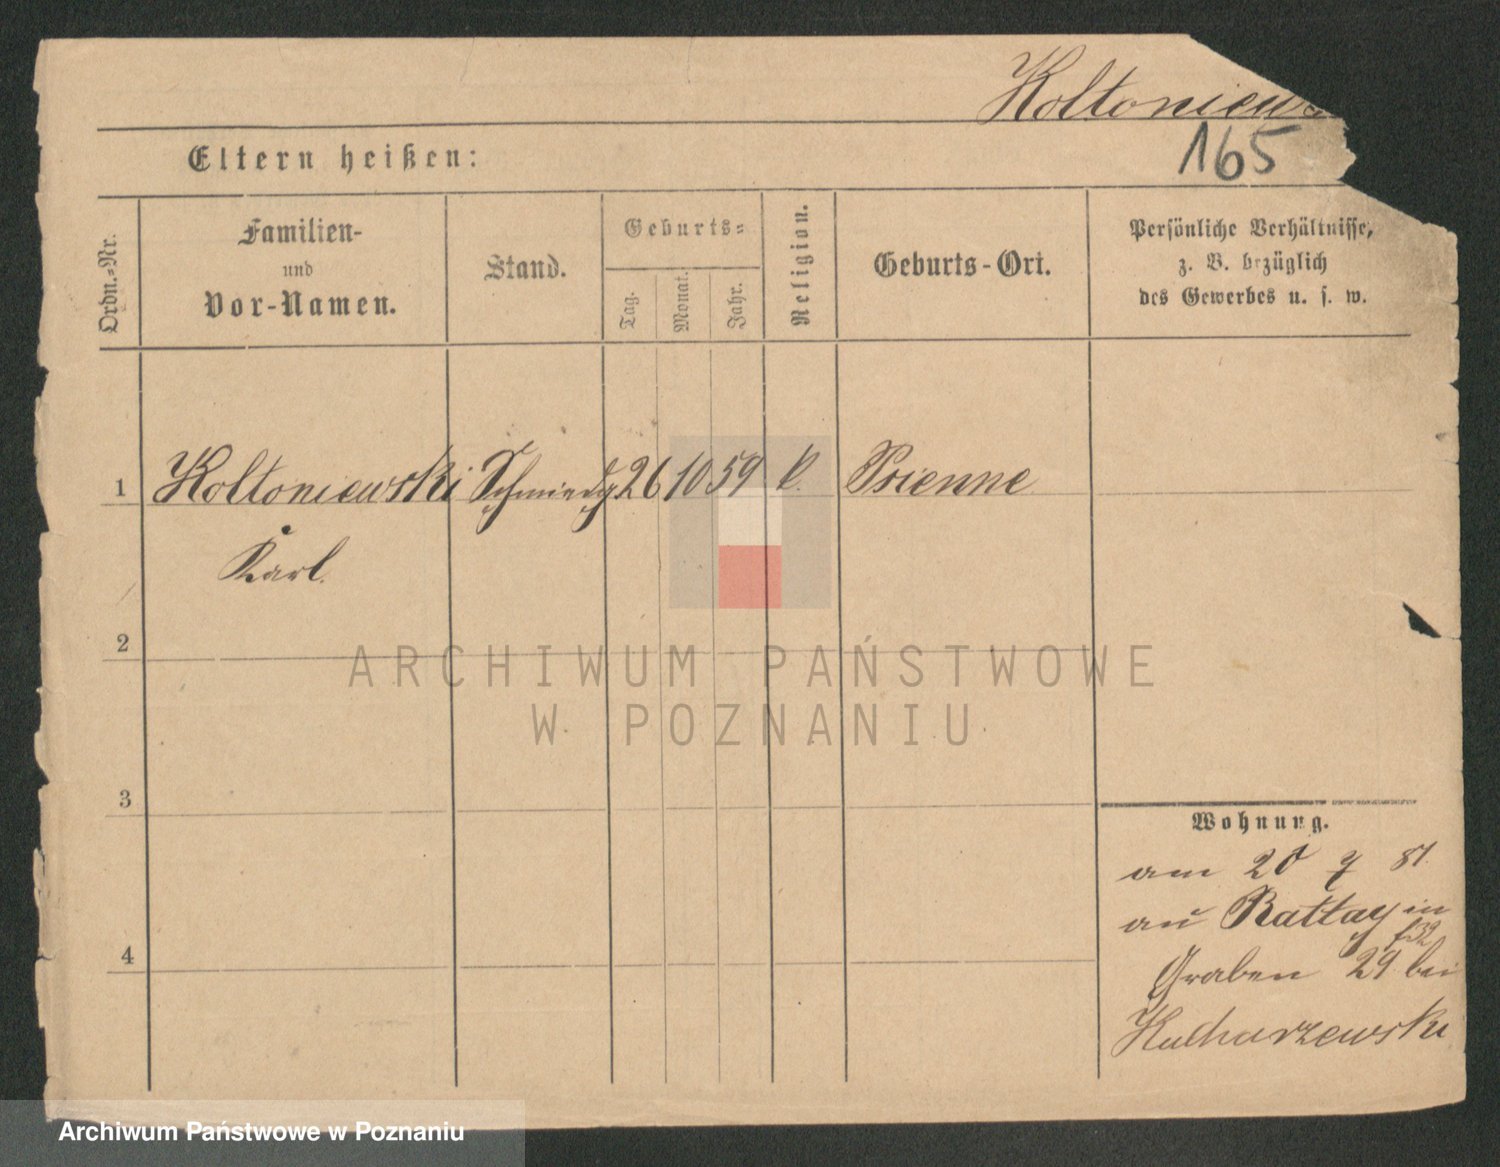 Koltoniews
165
Eltern heißen:
Ordn.=Nr.
Familien-
und
Vor-Namen.
Stand.
Geburts=
Tag.
Monat.
Jahr.
Religion.
Geburts-Ort.
Persönliche Verhältnisse,
z. B. bezüglich
des Gewerbes u. s. w.
1 Koltoniewski Schmiedg 26 10 59 k. Psienne
Karl.
2
ARCHIWUM PAŃSTWOWE
W POZNANIU
3
Wohnung.
am 20 7 81.
Rattay in
f32
4
Graben 29 bei
Kucharzewski
Archiwum Państwowe w Poznaniu